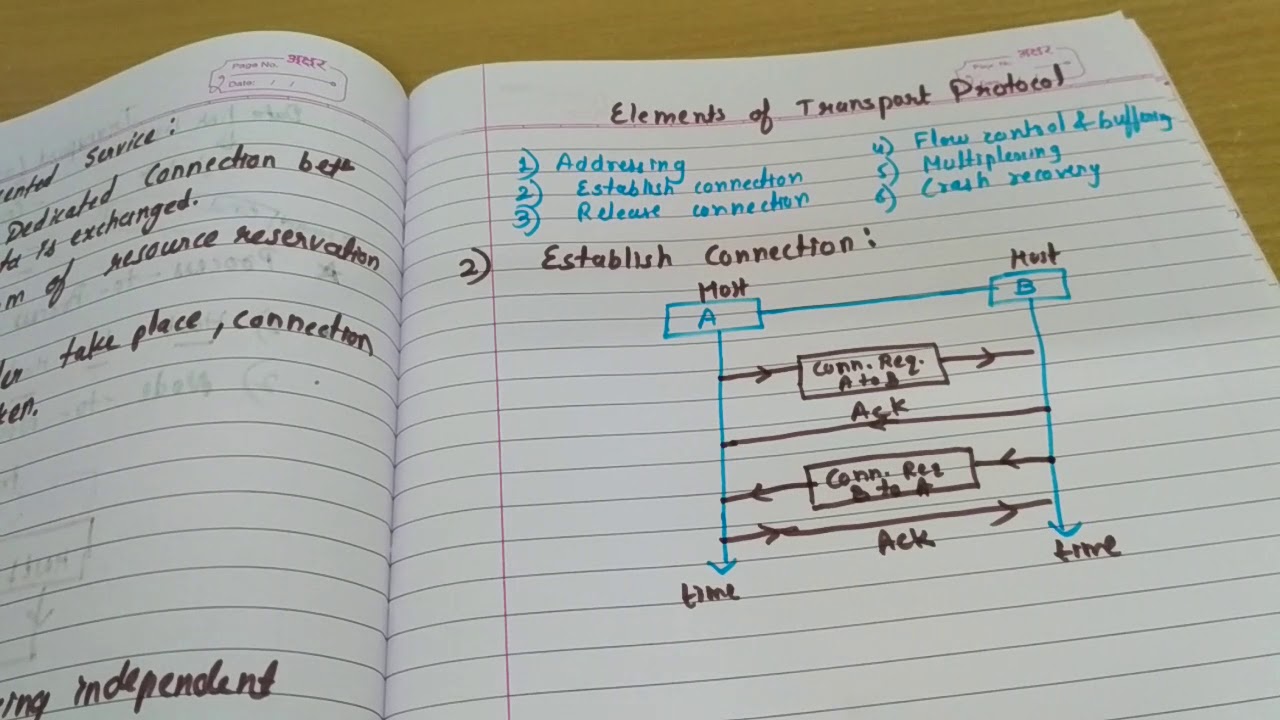 Page No.
अक्षर
Date: / /
ented Service:
Dedicated Connection betn
ta is exchanged.
m of resource reservation
take place, connection
ken.
ing independent
Page No.
अक्षर
Elements of Transport Protocol
1) Addressing
2) Establish connection
3) Release connection
4) Flow control & buffering
5) Multiplexing
6) Crash recovery
2) Establish Connection:
Host
A
Host
B
Conn. Req.
A to B
Ack
Conn. Req
B to A
Ack
time
time